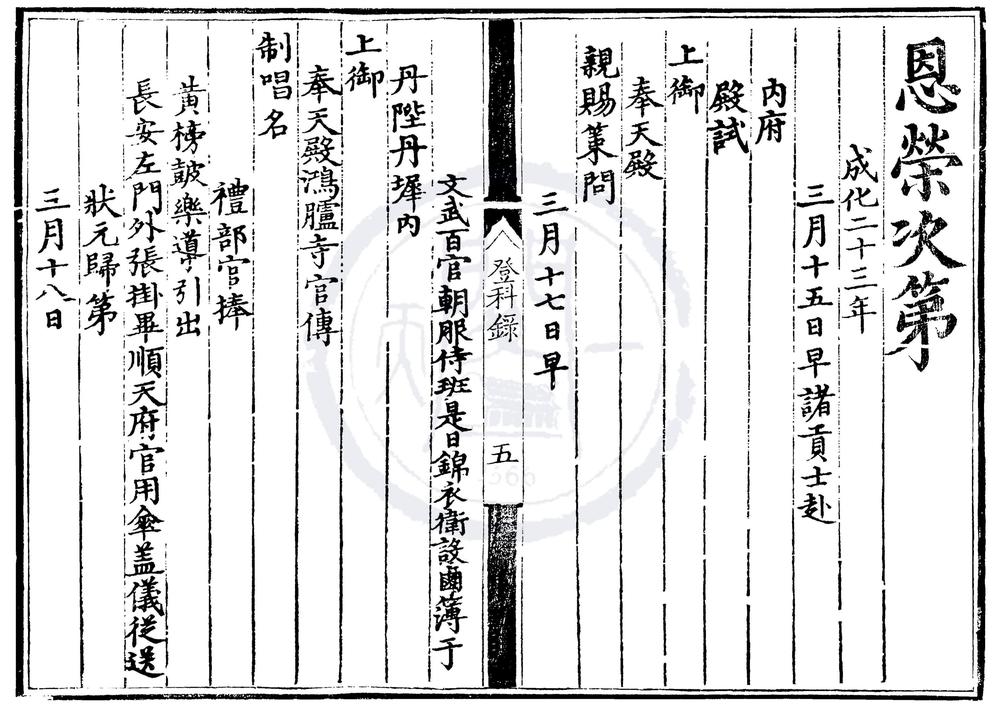 恩榮次第
成化二十三年
三月十五日早諸貢士赴
內府
殿試
上御
奉天殿
親賜策問
三月十七日早
登科錄
五
文武百官朝服侍班是日錦衣衛設鹵簿于
丹陛丹墀內
上御
奉天殿鴻臚寺官傳
制唱名
禮部官捧
黃榜皷樂導引出
長安左門外張掛畢順天府官用傘盖儀從送
狀元歸第
三月十八日